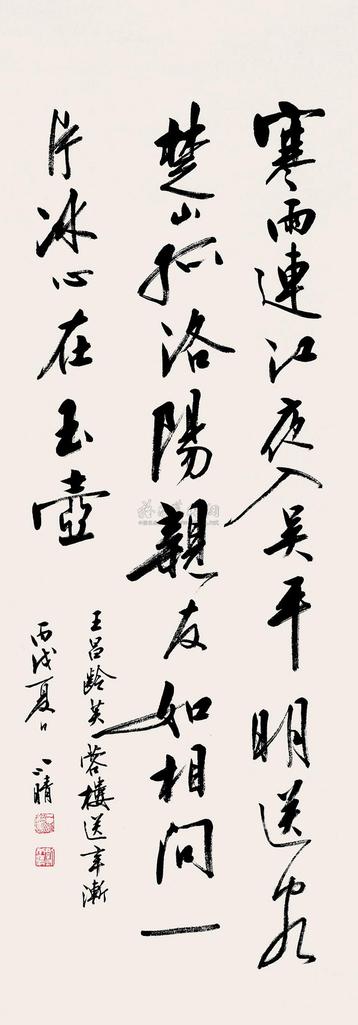 寒雨連江夜入吳平明送客
楚山孤洛陽親友如相問一
片冰心在玉壺
王昌齡芙蓉樓送辛漸
丙戌夏日一晴